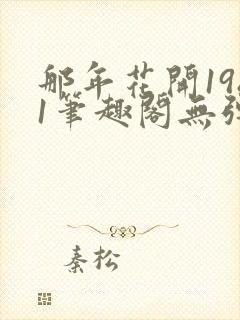 那年花開19
1筆趣閣無
秦松